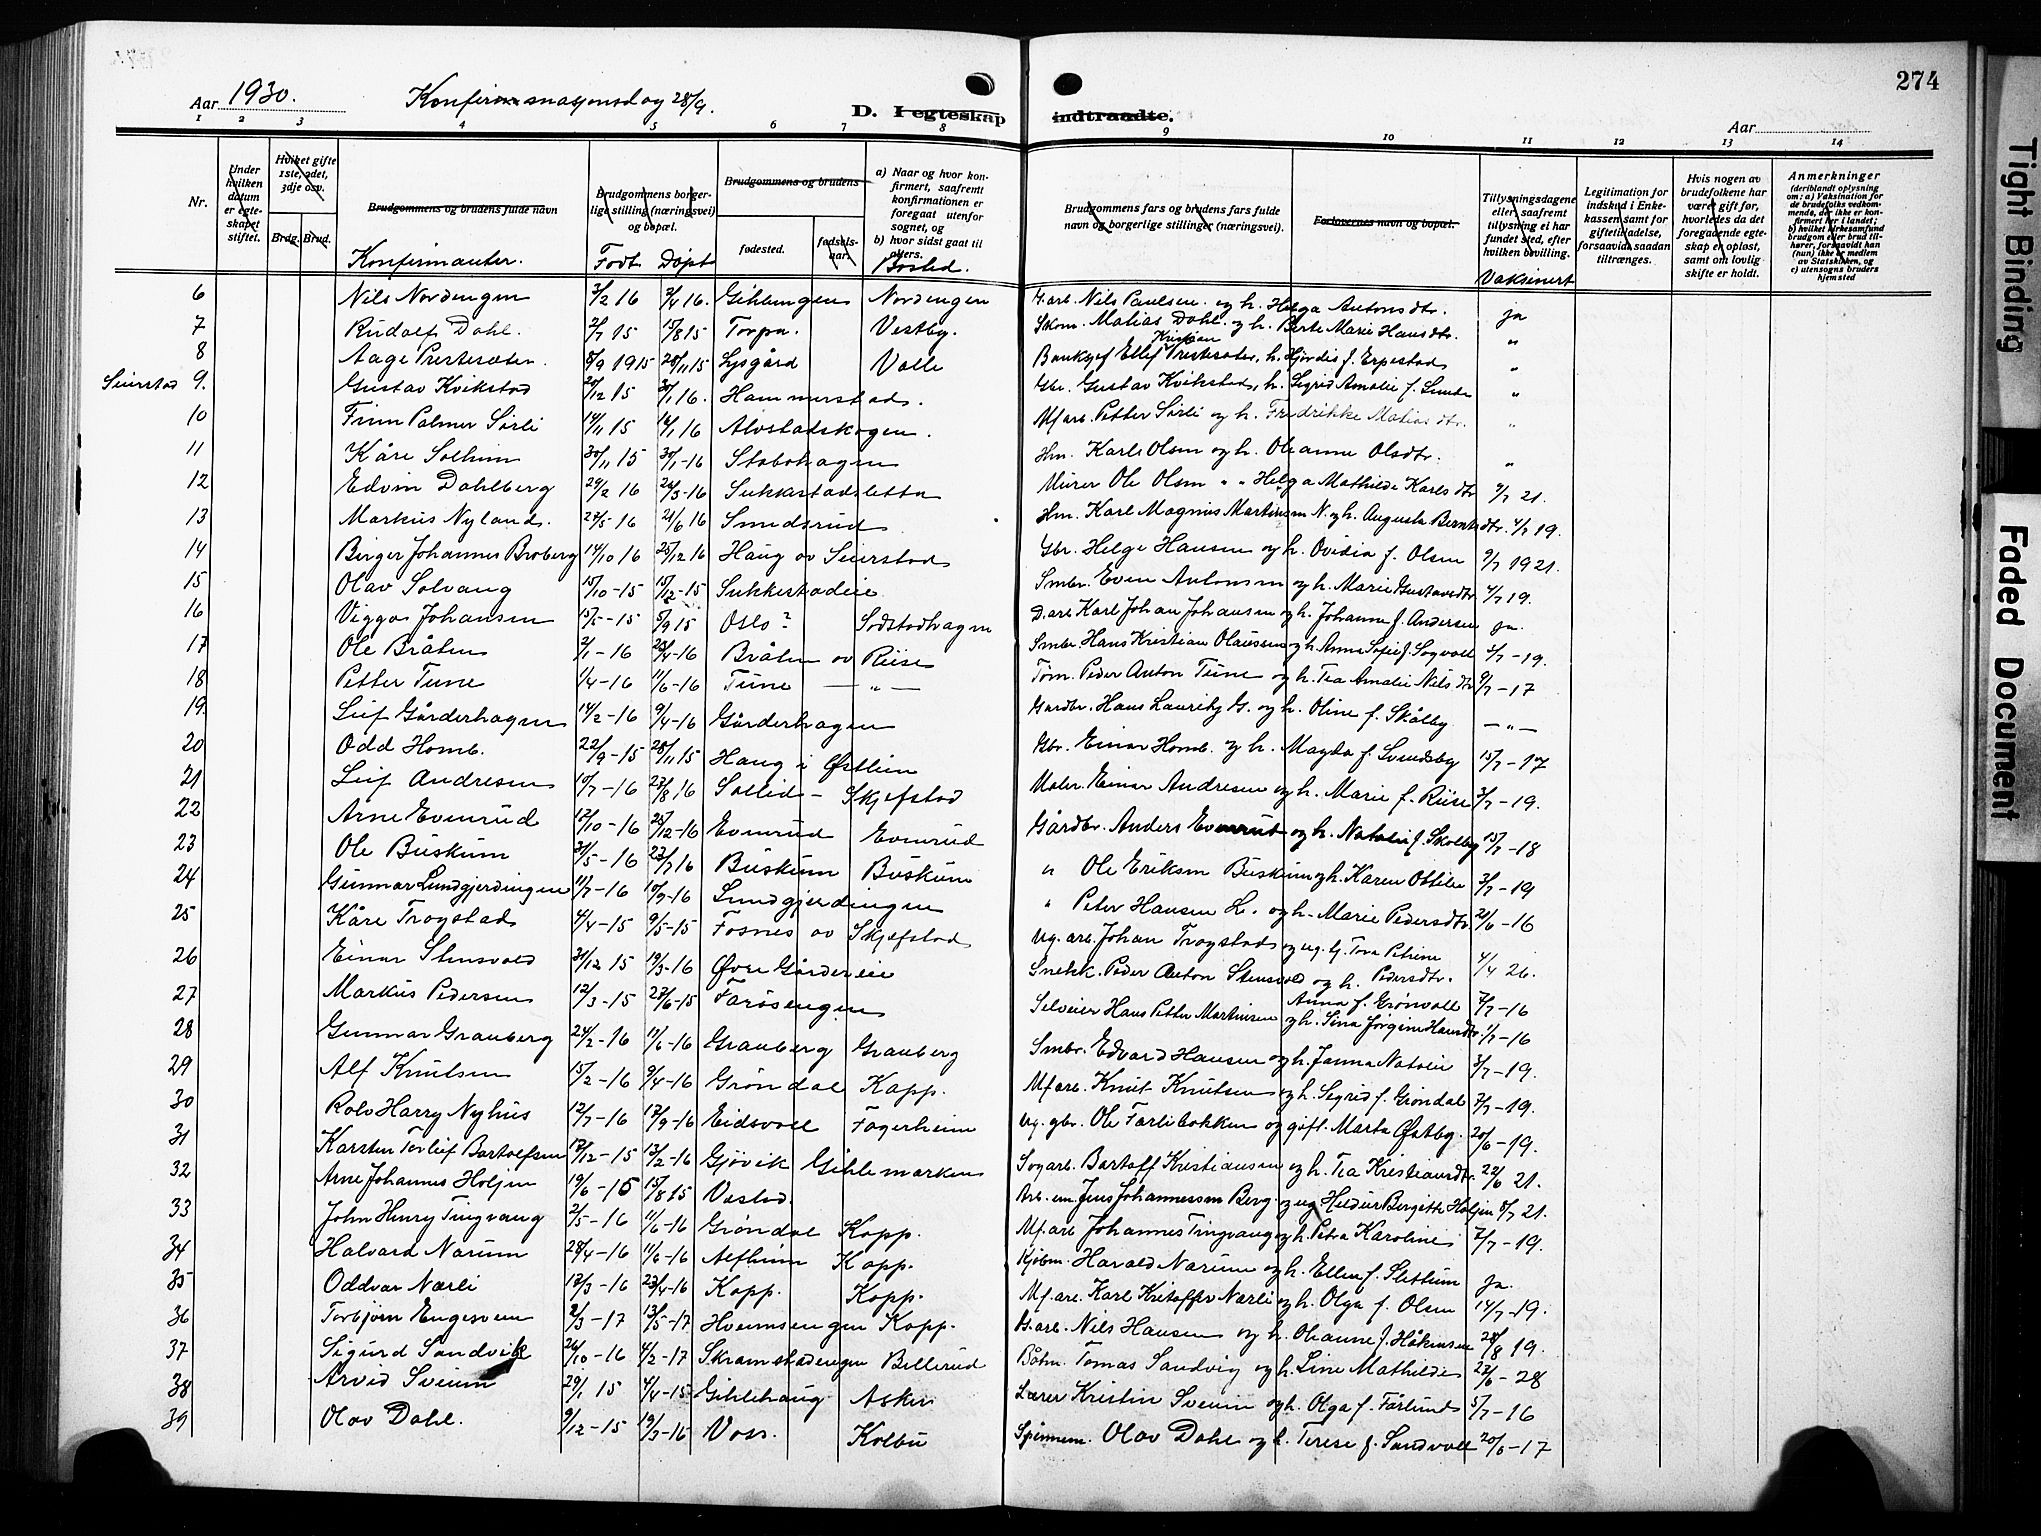 274
Aar 1930. Konfirmasjonsdag 28/9. D. I egteskap indtraadte. Aar
1 2 3 4 5 6 7 8 9 10 11 12 13 14
Nr.
Under hvilken datum er egteskapet stiftet.
Hvilket gifte 1ste, 2det, 3dje osv.
Brdg. Brud.
Brudgommens og brudens fulde navn
Konfirmanter.
Brudgommens borgerlige stilling (næringsvei) og bopæl.
Født Døpt
Brudgommens og brudens
fødested. fødselsaar.
a) Naar og hvor konfirmert, saafremt konfirmationen er foregaat utenfor sognet, og b) hvor sidst gaat til alters.
Bosted.
Brudgommens fars og brudens fars fulde navn og borgerlige stillinger (næringsvei).
Forlovernes navn og bopæl.
Tillysningsdagene eller, saafremt tillysning ei har fundet sted, efter hvilken bevilling.
Vaksinert
Legitimation for indskud i Enkekassen samt for giftetilladelse, forsaavidt saadan tiltrænges.
Hvis nogen av brudefolkene har været gift før, hvorledes da det foregaaende egteskap er opløst, samt om lovlig skifte er holdt.
Anmerkninger (deriblandt oplysning om: a) Vaksination for de brudefolks vedkommende, der ikke er konfirmert her i landet; b) hvilket kirkesamfund brudgom eller brud tilhører, forsaavidt han (hun) ikke er medlem av Statskirken, og c) utensogns bruders hjemsted
6 Nils Nordengen 3/2 16 2/4 16. Gihlengen Nordengen G.arb. Nils Paulsen og h. Helga Antonsdtr. ja
7 Rudolf Dahl. 2/7 15 15/8 15 Torpa. Vestby. Skom. Matias Dahl og h. Berte Marie Hansdtr. "
8 Aage Prestesæter 8/9 1915 28/11 15 Lysgård Valle Banksjef Ellef Kristian Prestesæter, h. Hjørdis f. Erpestad "
Seierstad 9. Gustav Kvikstad 20/12 15 30/1 16. Hammerstad. Gbr. Gustav Kvikstad, h. Sigrid Amalie f. Lunde "
10 Finn Palmer Sørli 14/11 15 16/1 16 Alvstadskogen. M.f.arb. Petter Sørli og h. Fredrikke Matiasdtr. "
11 Kåre Solheim 30/11 15 30/1-16 Stabohagen Hm. Karl Olsen og h. Oleanne Olsdtr. "
12 Edvin Dahlberg 29/2 16 26/3-16 Sukkestadsletta Murer Ole Olsen " " Helga Mathilde Karlsdtr 9/7 21.
13 Markus Nyland. 27/5-16 21/6 16 Smedsrud Hm. Karl Magnus Martinsen N. og h. Augusta Berntsdtr. 4/7 19.
14 Birger Johannes Broberg 14/10 16 25/12 16 Haug av Seierstad Gbr. Helge Hansen og h. Ovidia f. Olsen 9/7 1921.
15 Olav Solvang 15/10-15 15/12-15 Sukkestadeie Smbr. Even Antonsen og h. Marie Gustavsdtr. 4/7 19.
16 Viggo Johansen 15/5-15 5/9 15 Oslo? Sodstadhagen D.arb. Karl Johan Johansen og h. Johanne f. Andersen ja.
17 Ole Bråten 2/1-16 23/4-16 Bråten av Riise Smbr. Hans Kristian Olaussen og h. Anna Sofie f. Sogvoll 3/7-19.
18 Petter Tune 1/4-16 11/6-16 Tune — " — Tøm. Peder Anton Tune og h. Tea Amalie Nilsdtr 9/7-17
19. Leif Gårderhagen 14/2-16 9/4-16 Gårderhagen Gardbr. Hans Lauritz G. og h. Oline f. Skålby — " —
20 Odd Homb. 22/9-15 28/11 15 Haug i Østlien Gbr. Einar Homb. og h. Magda f. Svendsby 15/7-17
21 Leif Andresen 10/7-16 27/8 16 Sollid - Skjefstad Maler. Einar Andresen og h. Marie f. Riise 3/7-19.
22 Arne Evenrud 12/10-16 25/12-16 Evenrud Evenrud Gårdbr. Anders Evenrud og h. Natalie f. Skolby 15/7-18
23 Ole Buskum 31/5-16 23/7 16 Buskum Buskum " Ole Eriksen Buskum og h. Karen Ottilie 3/7-19
24 Gunnar Lundgjerdingen 11/7-16 10/9-16 Lundgjerdingen " Peter Hansen L. og h. Marie Pedersdtr 21/6-16
25 Kåre Trogstad 4/4-15 9/5-15 Fosnes av Skjefstad Ug. arb. Johan Trogstad og ug. tj. Tora Petrine Pedersdtr. 4/4 26.
26 Einar Stensvold 31/12 15 19/3-16 Øvre Gårdereie Snekk. Peder Anton Stensvold og h. Anna f. Grønvold 7/7-16
27 Markus Pedersen 12/3-15 27/6-15 Farøsengen Selveier Hans Petter Martinsen og h. Lina Jørgine Hansdtr. 1/7-16
28 Gunnar Granberg 24/2-16 11/6-16 Granberg Granberg Smbr. Edvard Hansen og h. Janna Natalie 3/7-19.
29 Alf Knutsen 15/2-16 9/4-16 Grøndal Kapp. M.f.arb. Knut Knutsen og h. Sigrid f. Grøndal 7/7-19.
30 Rolv Harry Nyhus 12/7-16 17/9-16 Eidsvoll Fagerheim Ug. gbr. Ole Farlibakken og gift. Marta Østby. 20/6-19.
31 Karsten Torleif Bartolfsen 17/12-15 13/2-16 Gjøvik Gihlemarken Sagarb. Bartolf Kristiansen og h. Tea Kristiansdtr. 22/6 21.
32 Arne Johannes Holjen 19/6-15 15/8 15 Vestad. Arb. em. Jens Johannessen Berg og ug. Heldur Bergitte Holjen 8/7 21.
33 John Henry Tingvang 2/5-16 11/6-16 Grøndal Kapp. M.f.arb Johannes Tingvang og h. Petra Karoline 7/7-19.
34 Halvard Narum 28/4-16 11/6-16 Alfheim Kapp. Kjøbm. Harald Narum og h. Ellen f. Slettum ja.
35 Oddvar Nærli 17/3-16 23/4-16 Kapp. Kapp. M.f.arb. Karl Kristoffer Nærli og h. Olga f. Olsen 14/7-19.
36 Torbjørn Engesveen 2/3-17 13/5-17 Hveemsengen Kapp. G.arb. Nils Hansen og h. Oleanne f. Håkensen 28/8 19.
37 Sigurd Sandvik 26/10-16 4/2-17 Skramstadengen Billerud Båtm. Tomas Sandvig og h. Line Mathilde 22/6-28
38 Arvid Sveum 29/1 15 4/4-15 Gihlehaug Asker Lærer Kristin Sveum og h. Olga f. Førlund 5/7-16
39 Olav Dahl. 9/12-15 19/3-16 Voss. Kolbu Spinnem. Olav Dahl og h. Terese f. Sandvoll 20/6-17
Tight Binding
Faded Document